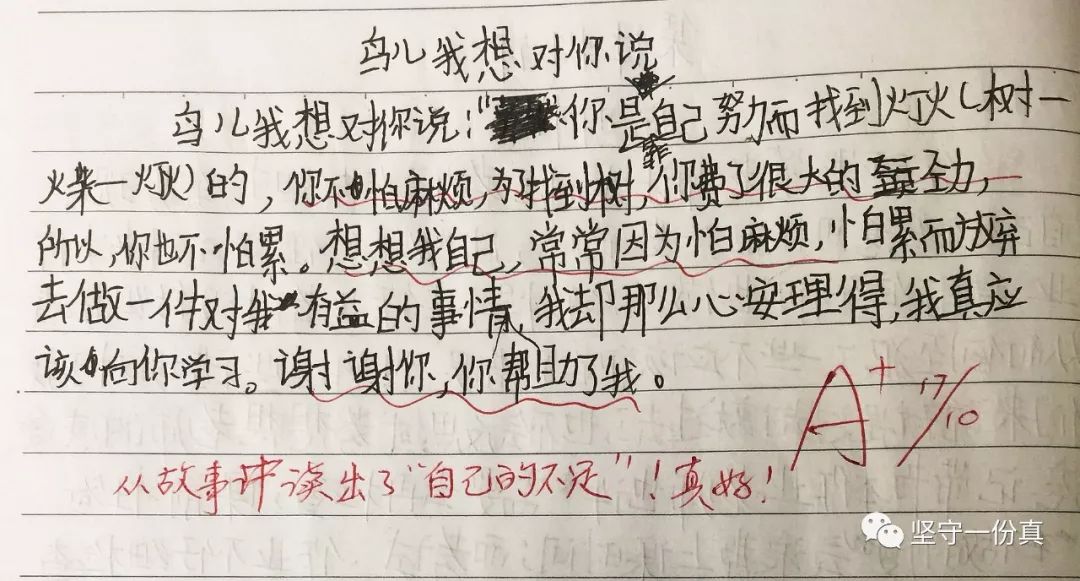 鸟儿我想对你说
鸟儿我想对你说:“你是靠自己努力而找到灯火(树一
火柴一烦火)的,你不怕麻烦,为了找到树,你费了很大的劲,
所以,你也不怕累。想想我自己,常常因为怕麻烦,怕累而放弃
去做一件对我有益的事情,我却那么心安理得,我真应
该向你学习。谢谢你,你帮助了我。
A+ 17/10
从故事中读出了“自己的不足”!真好!
坚守一份真